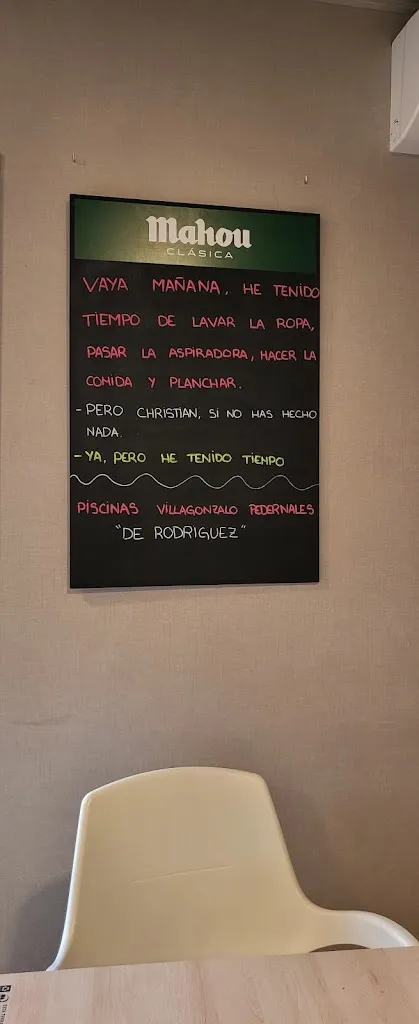 Mahou
CLÁSICA
VAYA MAÑANA, HE TENIDO
TIEMPO DE LAVAR LA ROPA,
PASAR LA ASPIRADORA, HACER LA
COMIDA Y PLANCHAR.
- PERO CHRISTIAN, SI NO HAS HECHO
NADA.
- YA, PERO HE TENIDO TIEMPO
PISCINAS VILLAGONZALO PEDERNALES
"DE RODRIGUEZ"